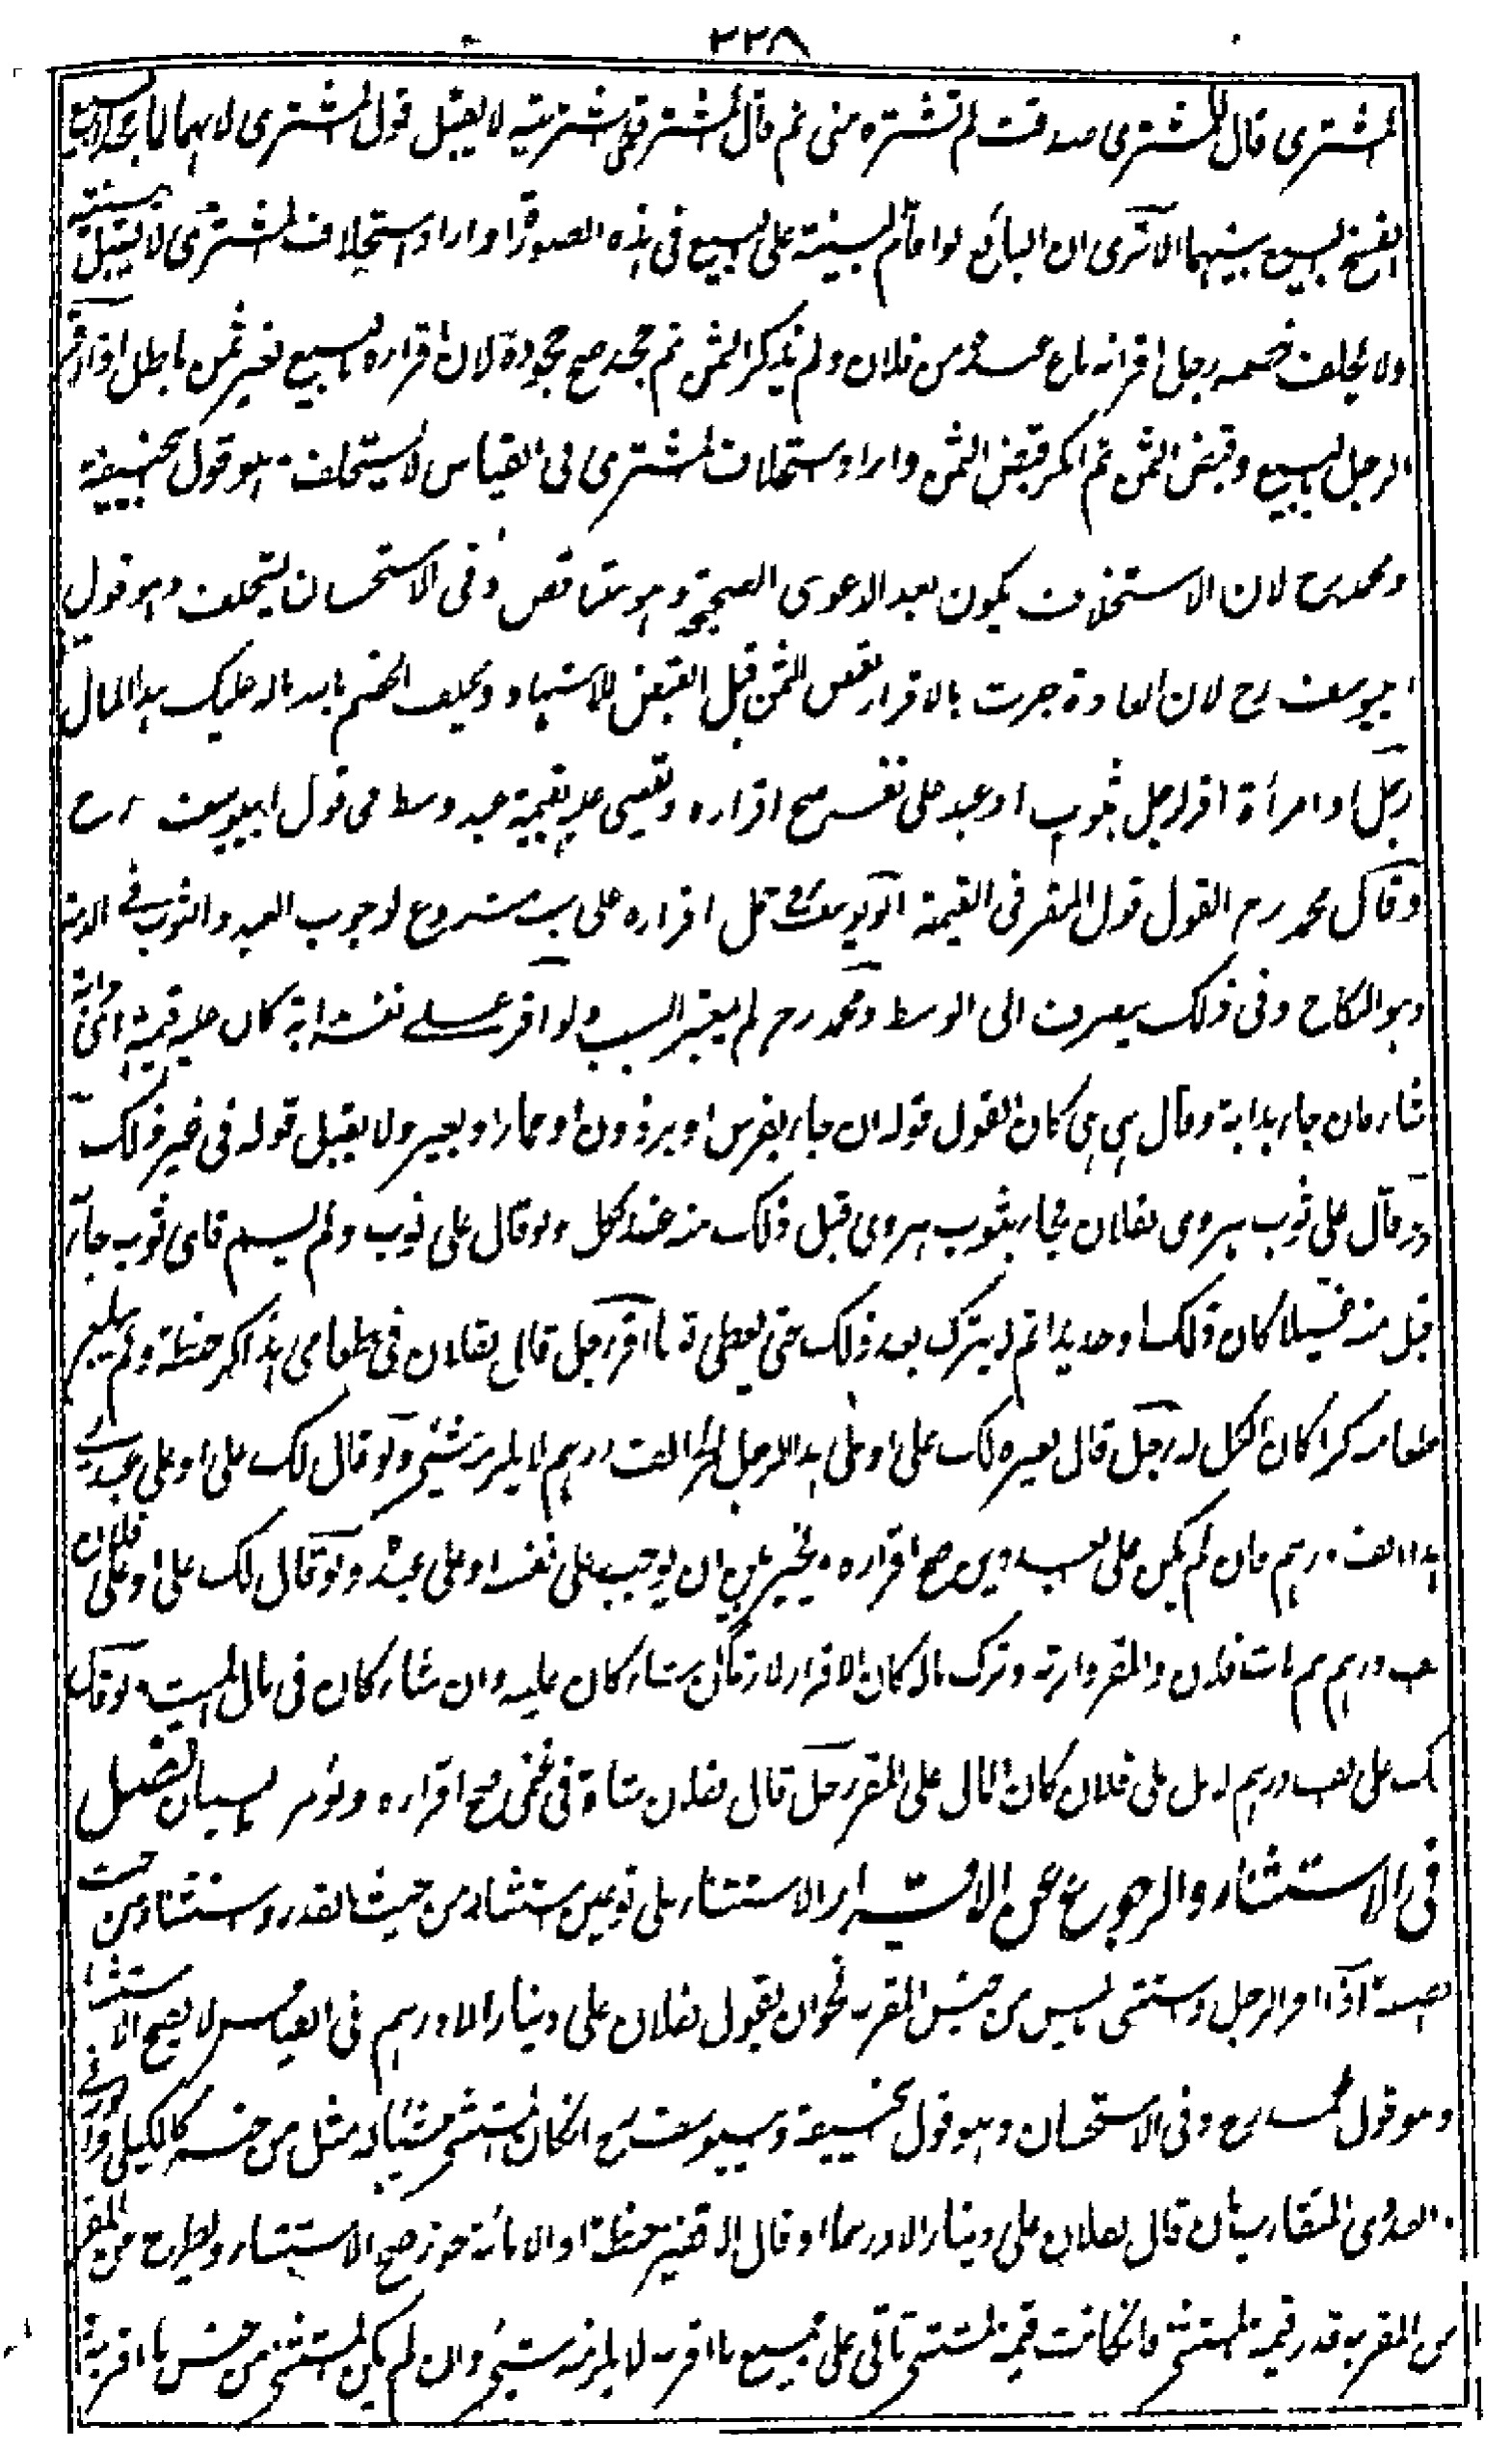 ٢٢٨
المشترى قال للمشترى صدقت لم تشتره منى ثم قال المشترى قد اشتريته لا يقبل قول المشترى لانهما لما تجاحدا البيع
انفسخ البيع بينهما الا ترى ان البائع لو اقام البينة على البيع فى هذه الصورة او اراد استحلاف المشترى لا يقبل بينته
ولا يحلف خصمه رجل اقر انه باع عبده من فلان ولم يذكر الثمن ثم جحد صح جحوده لان اقراره بالبيع بغير ثمن باطل
الرجل بالبيع وقبض الثمن ثم انكر قبض الثمن واراد استحلاف المشترى فى القياس لا يستحلف وهو قول ابيحنيفة
ومحمد رح لان الاستحلاف يكون بعد الدعوى الصحيحة وهو متناقض وفى الاستحسان يستحلف وهو قول
ابيوسف رح لان العادة جرت بالاقرار بقبض الثمن قبل القبض للاشهاد ويحلف الخصم بالله ماله عليك هذا المال
رجل او امرأة اقر لرجل بثوب او عبد على نفسه صح اقراره ويقضى عليه بقيمة عبد وسط فى قول ابيوسف رح
وقال محمد رح القول قول المقر فى القيمة ابويوسف رح حمل اقراره على سبب مشروع لوجوب العبد والثوب فى الذمة
وهو النكاح وفى ذلك يصرف الى الوسط ومحمد رح لم يعتبر السبب ولو اقر على نفسه ان عليه
شاء فان جاء بدابة وقال هى هى كان القول قوله ان جاء بفرس او برذون او حمار او بعير ولا يقبل قوله فى غير ذلك
ولو قال على ثوب هروى لفلان فجاء بثوب هروى قبل ذلك منه عند الكل ولو قال على ثوب ولم يسم فاى ثوب جاء
قبل منه غسيلا كان ذلك او جديدا ثم لا يترك بعد ذلك حتى يعطى رجل قال لفلان فى طعامى هذا كر حنطة ولم يبلغ
طعامه كرا كان الكل له رجل قال لغيره لك على او على هذا الرجل الحر الف درهم لا يلزمه شىء ولو قال لك على او على عبدى
هذا الف درهم فان لم يكن على العبد دين صح اقراره ويخير بين ان يوجب على نفسه او على عبده ولو قال لك على او على فلان
الف درهم ثم مات فلان والمقر وارثه وترك مالا كان الاقرار لازما ان شاء كان عليه وان شاء كان فى مال الميت ولو قال
لك على الف درهم لا بل على فلان كان المال على المقر رجل قال لفلان شاة فى غنمى صح اقراره ويؤمر بالبيان فصل
فى الاستثناء والرجوع عن الاقرار الاستثناء على نوعين استثناء من حيث القدر واستثناء من حيث
الصفة اذا اقر الرجل واستثنى ما ليس من جنس المقر به نحو ان يقول لفلان على دينار الا درهم فى القياس لا يصح الاستثناء
وهو قول محمد رح وفى الاستحسان وهو قول ابيحنيفة وابيوسف رح انكان المستثنى شيئا له مثل من جنسه كالكيلى والوزنى
والعددى المتقارب بان قال لفلان على دينار الا درهما او قال الا قفيز حنطة او الا مائة جوز صح الاستثناء ويطرح
من المقر به قدر قيمة المستثنى فانكانت قيمة المستثنى تاتى على جميع ما اقر به لا يلزمه شىء وان لم يكن المستثنى من جنس ما اقر به